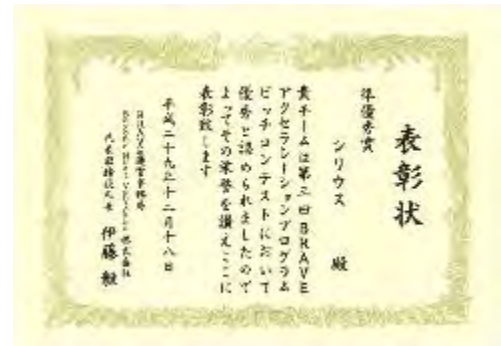 表彰状
準優秀賞
シリウス 殿
貴チームは第三回BRAVE
アクセラレーションプログラム
ピッチコンテストにおいて
優秀と認められましたので
よってその栄誉を讃えここに
表彰致します
平成二十九年十二月十八日
BRAVE運営事務局
Beyond Next Ventures株式会社
代表取締役社長 伊藤 毅